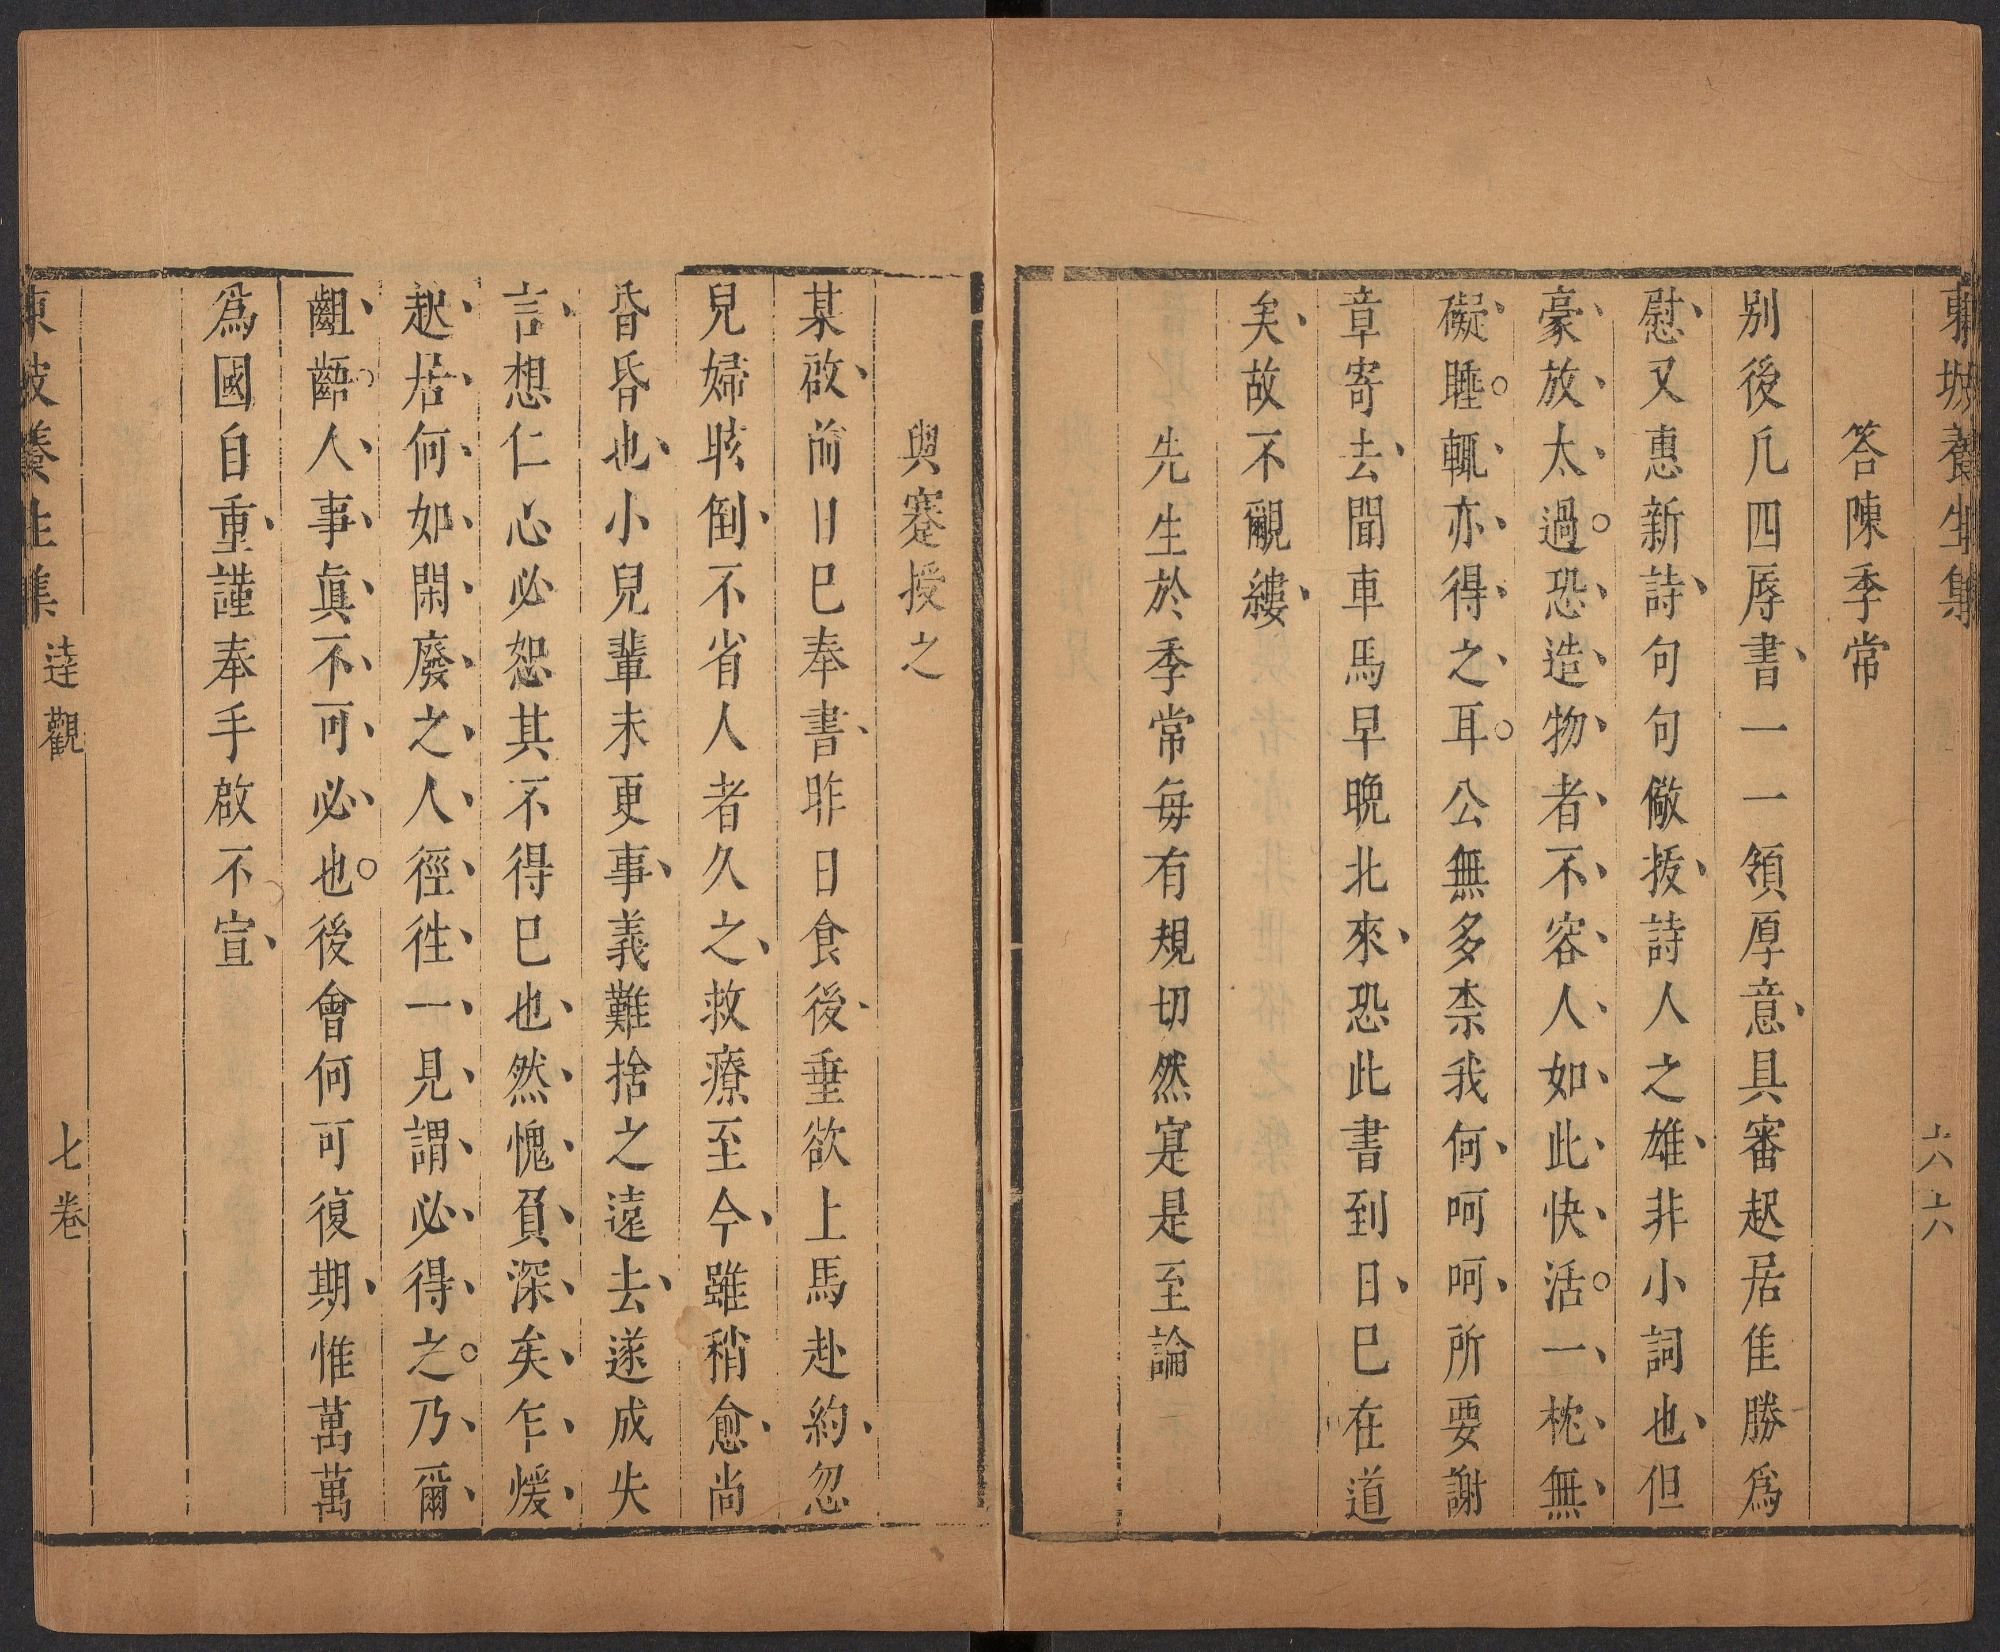 東坡養生集
六六
答陳季常
别後凡四辱書一一領厚意具審起居佳勝爲
慰又惠新詩句句儆拔詩人之雄非小詞也但
豪放太過恐造物者不容人如此快活一枕無
礙睡輒亦得之耳公無多柰我何呵呵所要謝
章寄去聞車馬早晚北來恐此書到日巳在道
矣故不覼縷
先生於季常每有規切然寔是至論
與蹇授之
某啟前日巳奉書昨日食後垂欲上馬赴約忽
兒婦眩倒不省人者久之救療至今雖稍愈尚
昏昏也小兒輩未更事義難捨之遠去遂成失
言想仁心必恕其不得巳也然愧負深矣乍煖
起居何如閑廢之人徑徃一見謂必得之乃爾
齟齬人事眞不可必也後會何可復期惟萬萬
爲國自重謹奉手啟不宣
東坡養生集
逹觀
七卷